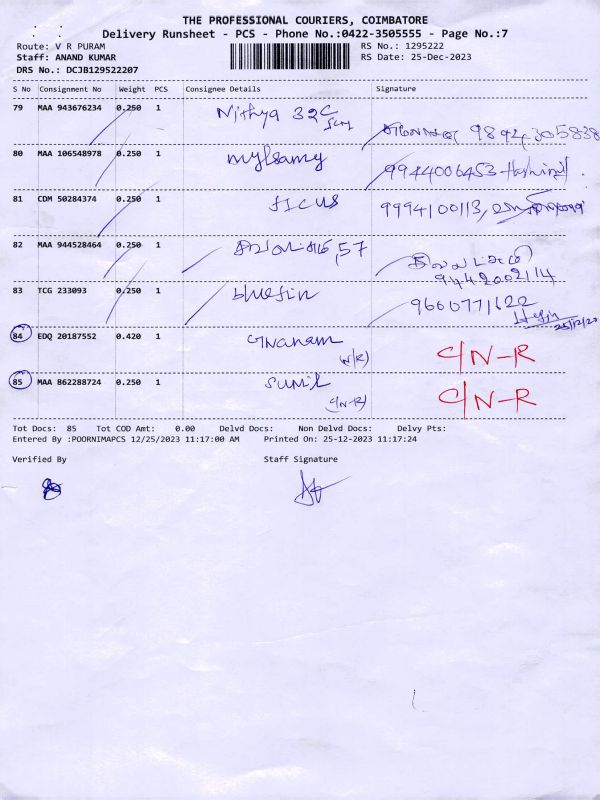 THE PROFESSIONAL COURIERS, COIMBATORE
Delivery Runsheet - PCS - Phone No.:0422-3505555 - Page No.:7
Route: V R PURAM RS No.: 1295222
Staff: ANAND KUMAR RS Date: 25-Dec-2023
DRS No.: DCJB129522207
S No Consignment No Weight PCS Consignee Details Signature
79 MAA 943676234 0.250 1 Nithya 32C 9894305838
80 MAA 106548978 0.250 1 mylsamy 9944006453
81 CDM 50284374 0.250 1 ficus 9994100113,
82 MAA 944528464 0.250 1 57
9442002114
83 TCG 233093 0.250 1 bluefin 9600771622
84 EDQ 20187552 0.420 1 Gnanam C/N-R
85 MAA 862288724 0.250 1 Sunil C/N-R
(N-R)
Tot Docs: 85 Tot COD Amt: 0.00 Delvd Docs: Non Delvd Docs: Delvy Pts:
Entered By :POORNIMAPCS 12/25/2023 11:17:00 AM Printed On: 25-12-2023 11:17:24
Verified By Staff Signature